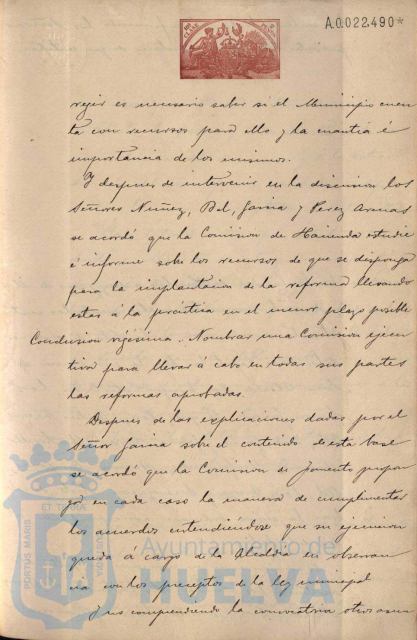 A.0.022.490*
regir es necesario saber si el Municipio cuen
ta con recursos para ello y la cuantia é
importancia de los mismos.
Y despues de intervenir en la discusion los
Señores Nuñez, Bel, Garcia y Perez Armas
se acordó que la Comision de Hacienda estudie
é informe sobre los recursos de que se disponga
para la implantacion de la reforma llevando
estas á la practica en el menor plazo posible
Conclusion vigésima. Nombrar una Comision ejecu
tiva para llevar á cabo en todas sus partes
las reformas aprobadas.
Despues de las explicaciones dadas por el
Señor Garcia sobre el contenido de esta base
se acordó que la Comision de Fomento propon
ga en cada caso la manera de cumplimentar
los acuerdos entendiendose que su ejecucion
queda á cargo de la Alcaldia en observan
cia con los preceptos de la ley municipal
Y no comprendiendo la convocatoria otros asun
PORTUS MARIS
ET TERRÆ
Ayuntamiento de
HUELVA